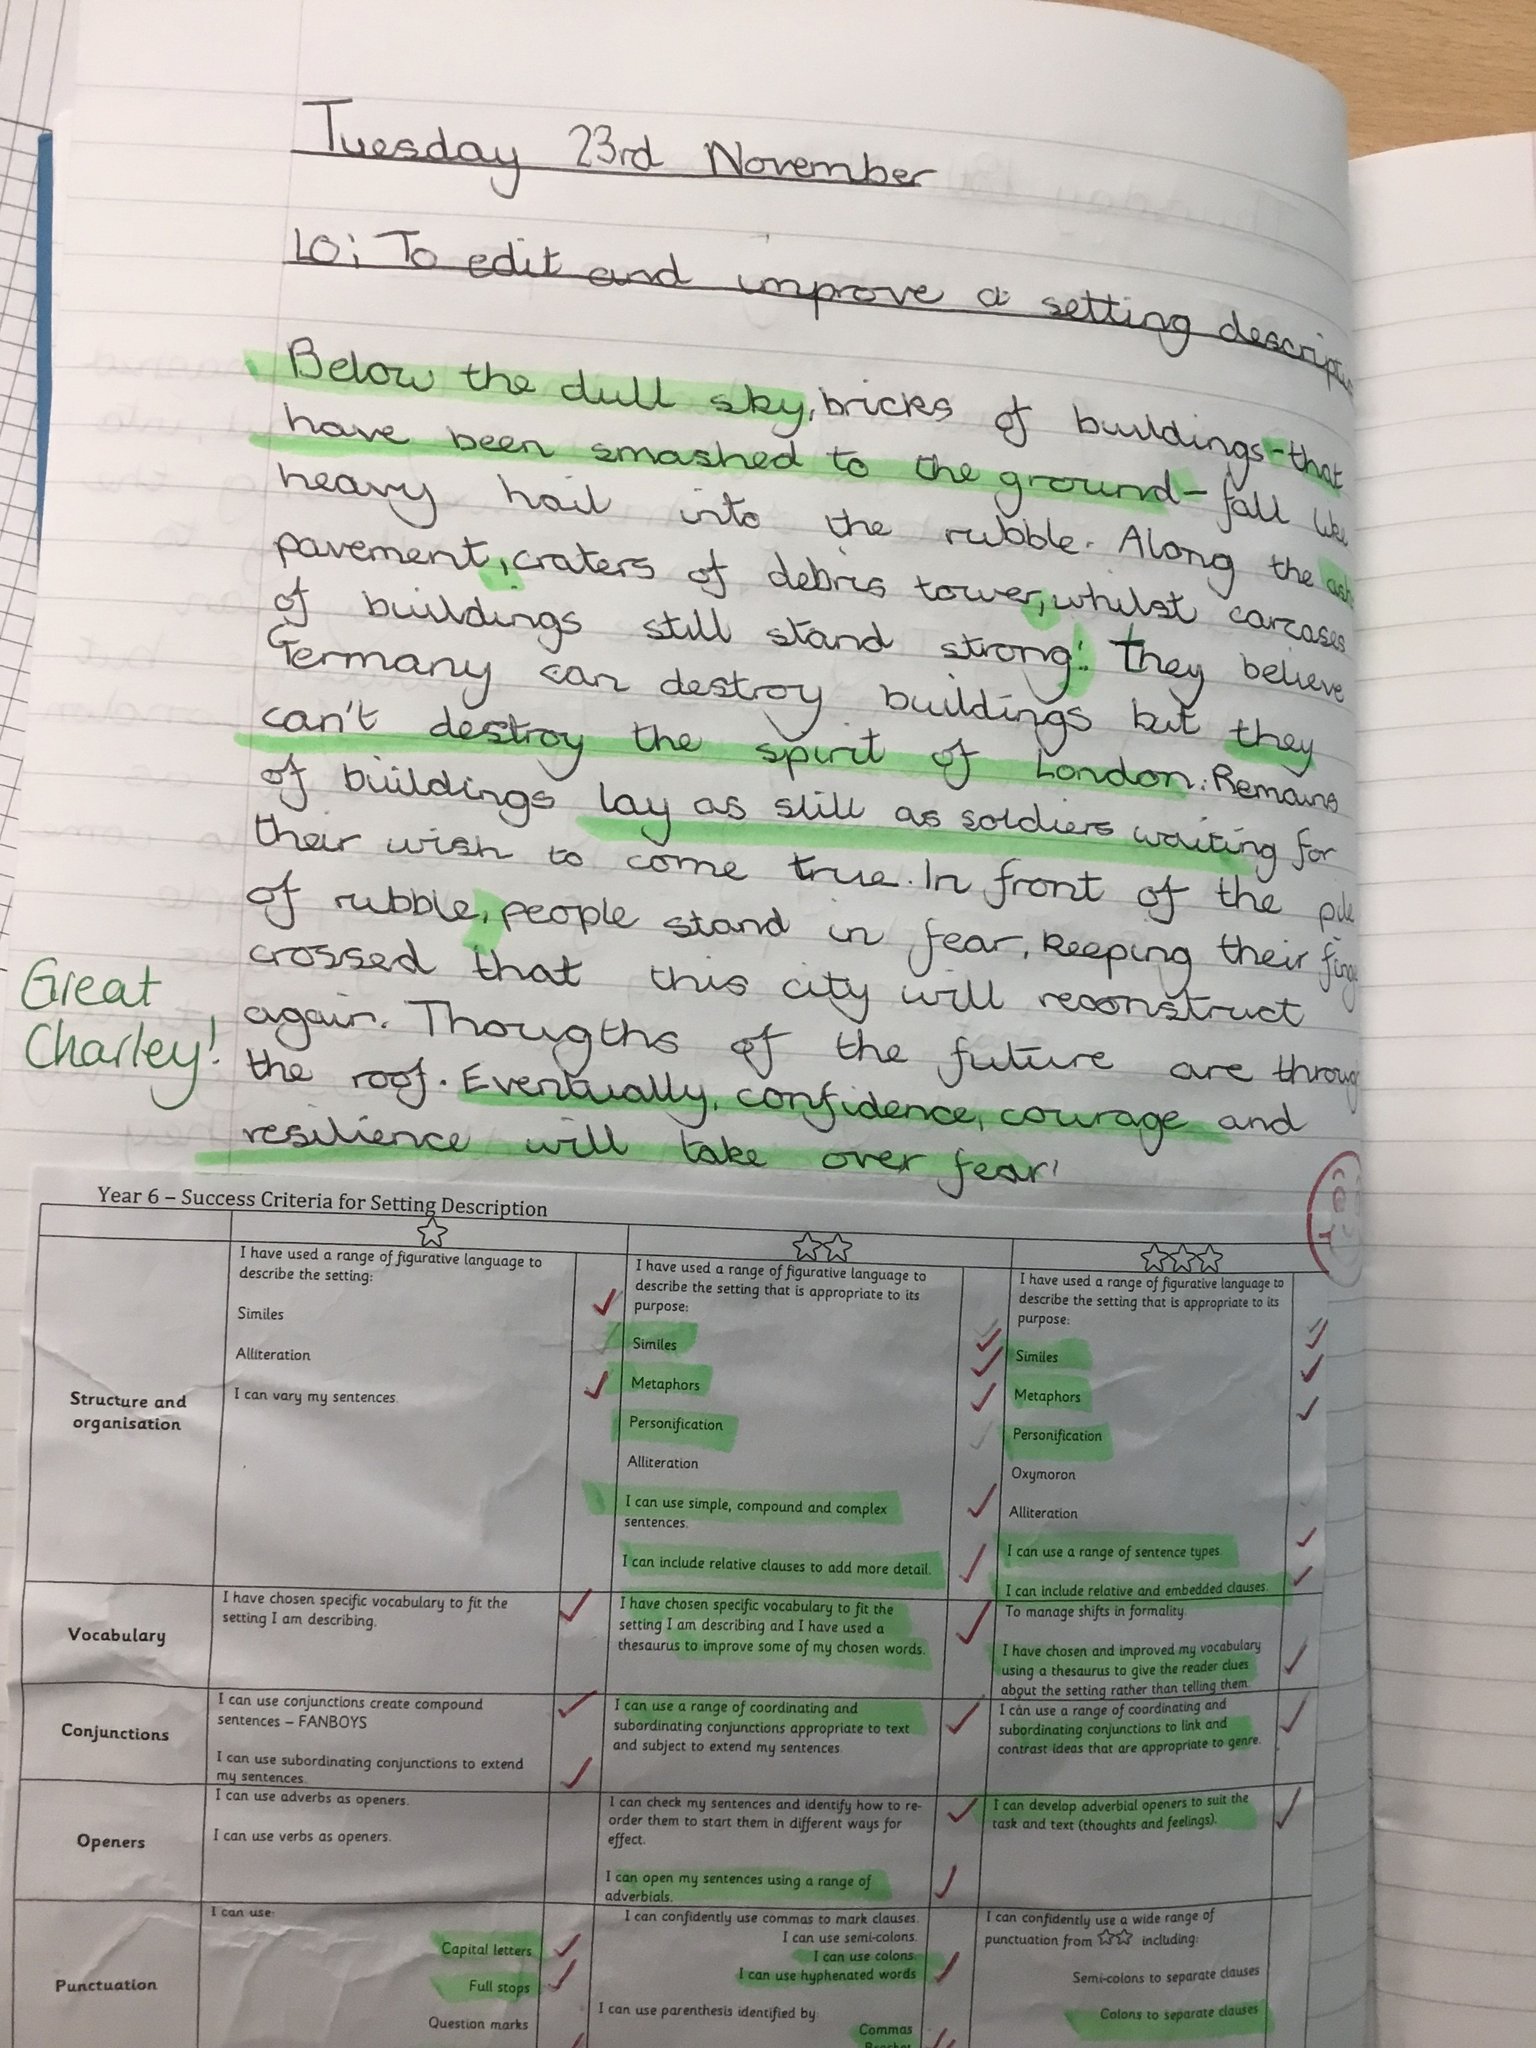 Tuesday 23rd November
LO: To edit and improve a setting
Below the dull sky, bricks of buildings - that
have been smashed to the ground - fall like
heavy hail into the rubble. Along the
pavement, craters of debris tower, whilst carcases
of buildings still stand strong: they believe
Germany can destroy buildings but they
can't destroy the spirit of London. Remains
of buildings lay as still as soldiers waiting for
their wish to come true. In front of the pile
of rubble, people stand in fear, keeping their
crossed that this city will reconstruct
again. Thougths of the future are through
the roof. Eventually, confidence, courage and
resilience will take over fear!
Great
Charley!
Year 6 – Success Criteria for Setting Description
Structure and
organisation
I have used a range of figurative language to
describe the setting:
Similes
Alliteration
I can vary my sentences
I have used a range of figurative language to
describe the setting that is appropriate to its
purpose:
Similes
Metaphors
Personification
Alliteration
I can use simple, compound and complex
sentences.
I can include relative clauses to add more detail.
I have used a range of figurative language to
describe the setting that is appropriate to its
purpose:
Similes
Metaphors
Personification
Oxymoron
Alliteration
I can use a range of sentence types.
I can include relative and embedded clauses.
To manage shifts in formality.
Vocabulary
I have chosen specific vocabulary to fit the
setting I am describing.
I have chosen specific vocabulary to fit the
setting I am describing and I have used a
thesaurus to improve some of my chosen words.
I have chosen and improved my vocabulary
using a thesaurus to give the reader clues
about the setting rather than telling them
Conjunctions
I can use conjunctions create compound
sentences – FANBOYS
I can use subordinating conjunctions to extend
my sentences.
I can use a range of coordinating and
subordinating conjunctions appropriate to text
and subject to extend my sentences
I can use a range of coordinating and
subordinating conjunctions to link and
contrast ideas that are appropriate to genre.
Openers
I can use adverbs as openers.
I can use verbs as openers.
I can check my sentences and identify how to re-
order them to start them in different ways for
effect.
I can open my sentences using a range of
adverbials.
I can develop adverbial openers to suit the
task and text (thoughts and feelings).
Punctuation
I can use:
Capital letters
Full stops
Question marks
I can confidently use commas to mark clauses.
I can use semi-colons.
I can use colons.
I can use hyphenated words
I can use parenthesis identified by:
Commas
I can confidently use a wide range of
punctuation from ☆☆ including:
Semi-colons to separate clauses
Colons to separate clauses